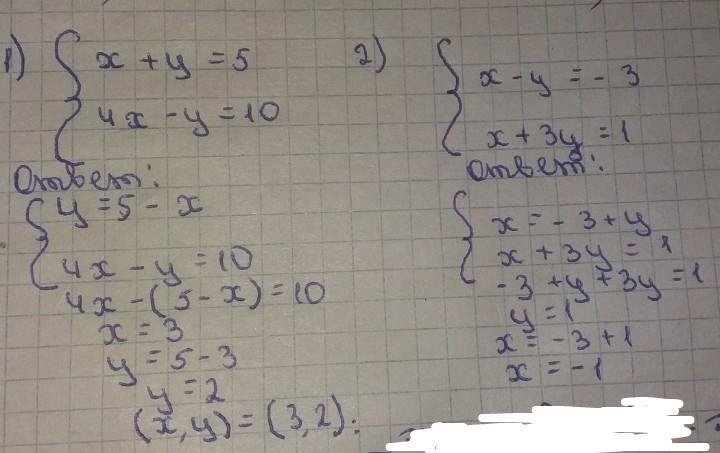 1) x + y = 5
4x - y = 10
Ответ:
y = 5 - x
4x - y = 10
4x - (5 - x) = 10
x = 3
y = 5 - 3
y = 2
(x, y) = (3, 2).
2) x - y = - 3
x + 3y = 1
Ответ:
x = - 3 + y
x + 3y = 1
-3 + y + 3y = 1
y = 1
x = -3 + 1
x = -1